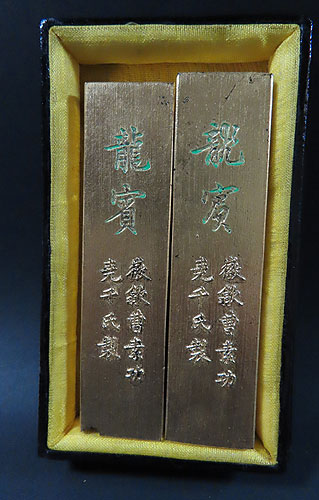 龍賓
徽歙曹素功
堯千氏製
龍賓
徽歙曹素功
堯千氏製